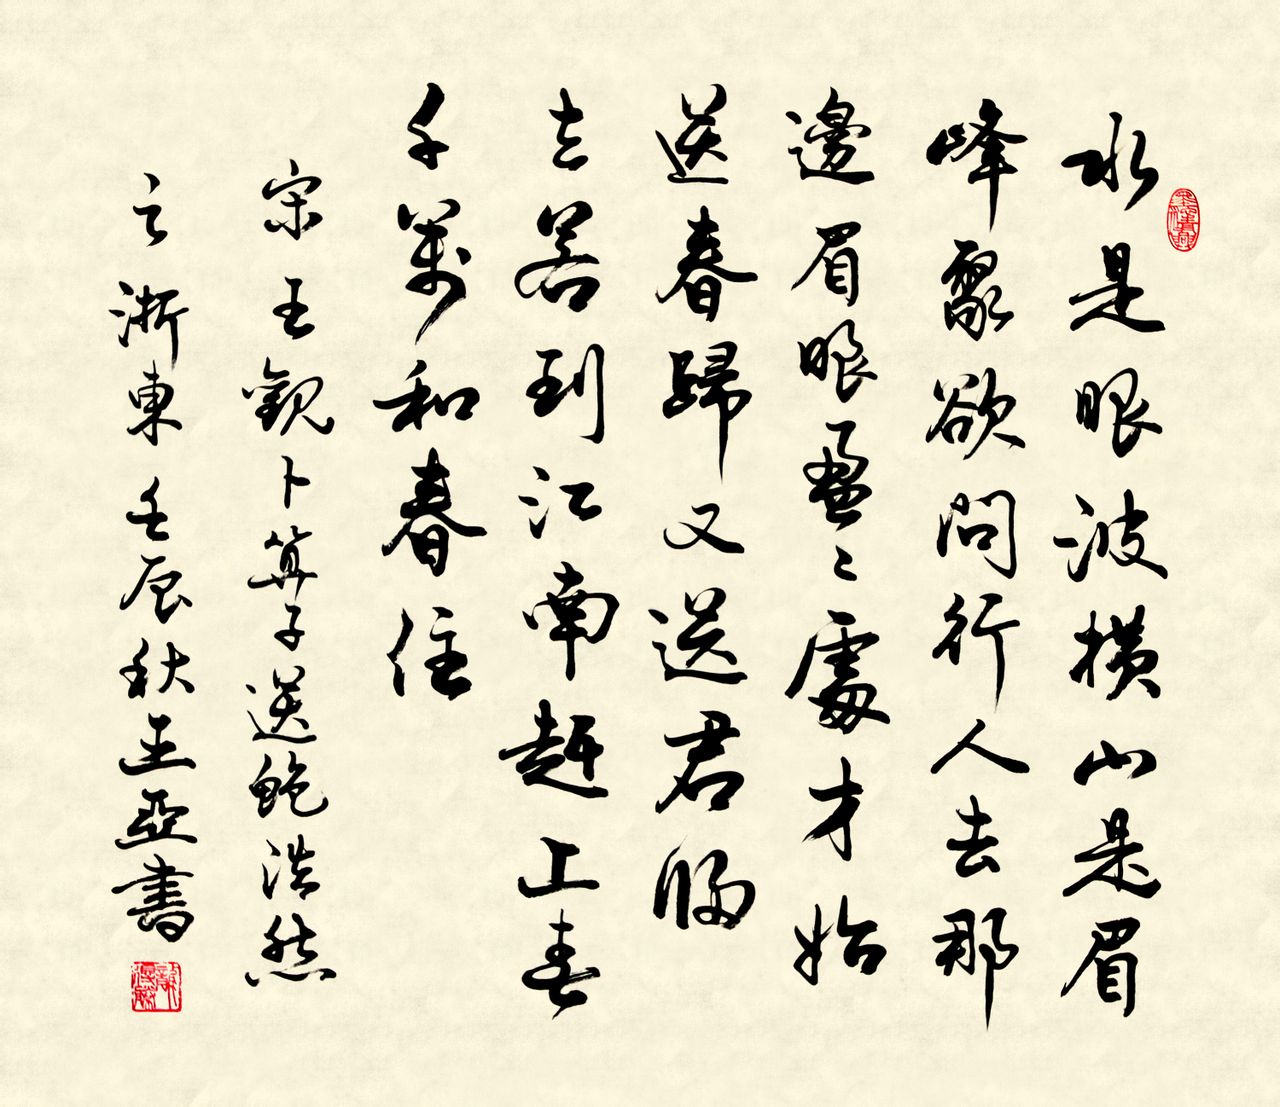 水是眼波横山是眉
峰聚欲問行人去那
邊眉眼盈〻處才始
送春歸又送君歸
去若到江南趕上春
千萬和春住
宋王觀卜算子送鮑浩然
之浙東壬辰秋王亞書